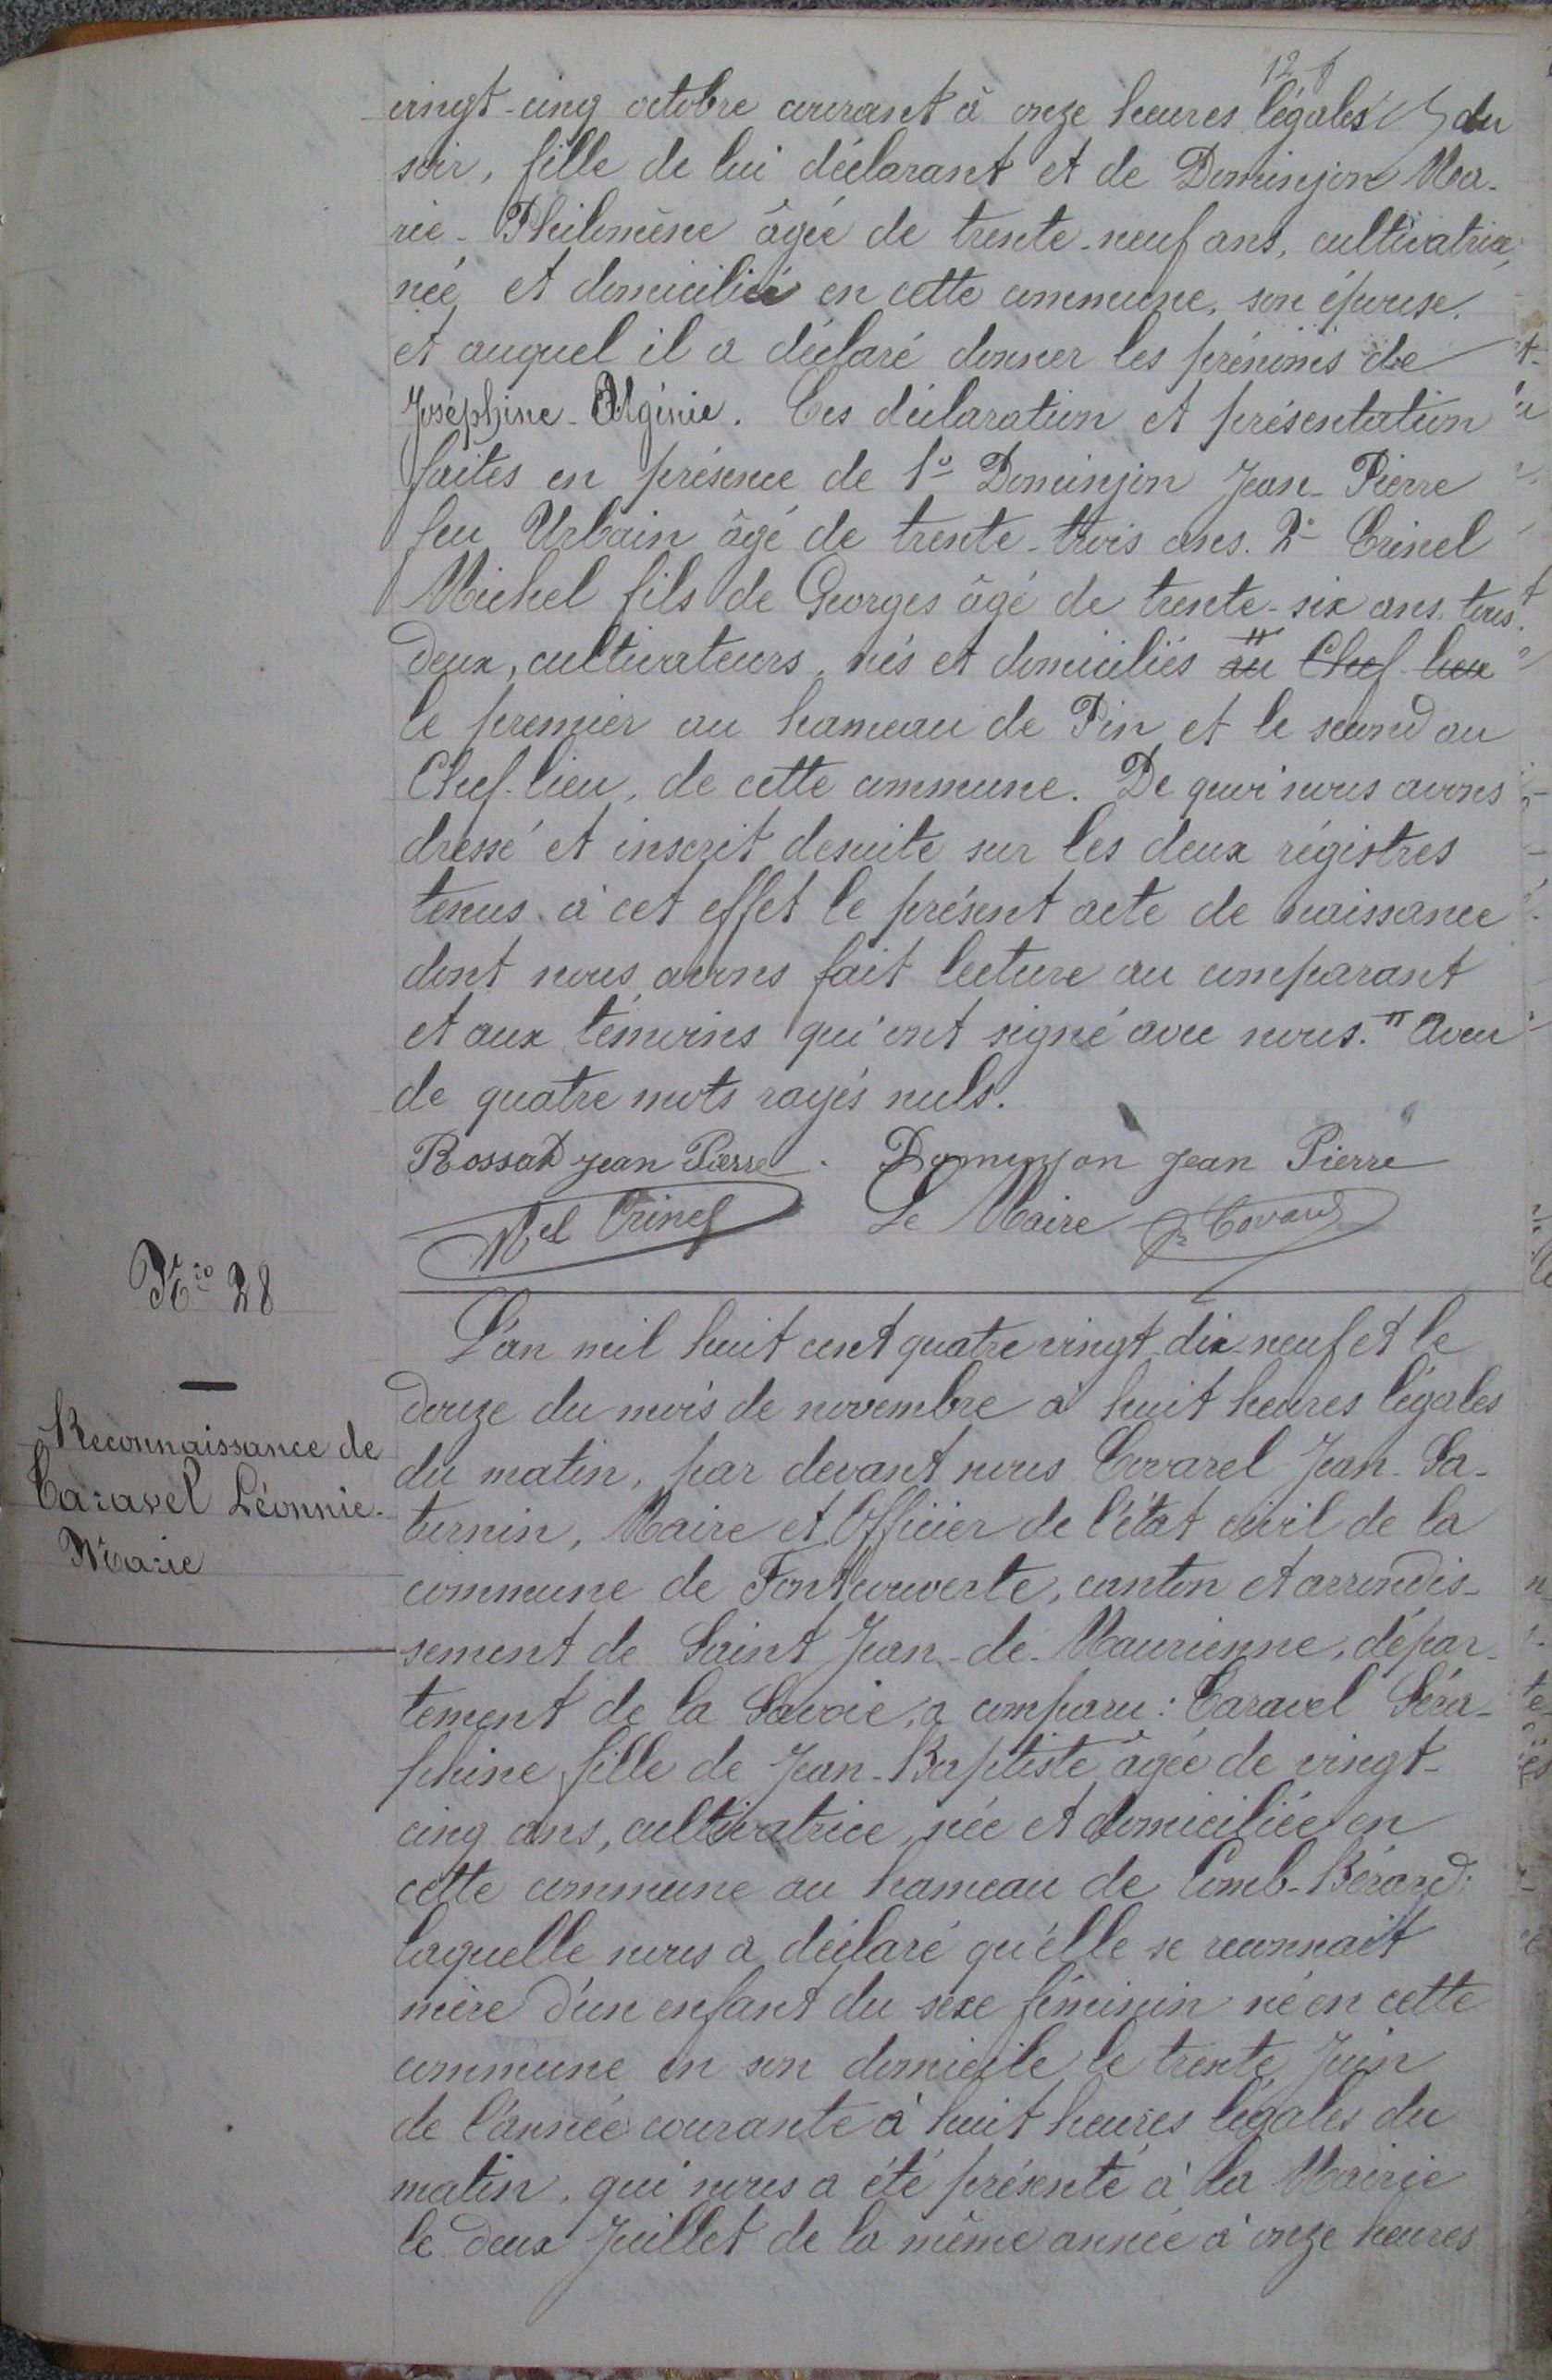 vingt-cinq octobre courant à onze heures légales du
soir, fille de lui déclarant et de Dominjon Ma-
rie-Philomène âgée de trente-neuf ans, cultivatrice,
née et domiciliée en cette commune, son épouse.
et auquel il a déclaré donner les prénoms de
Joséphine-. Ces déclaration et présentation
faites en présence de 1º Dominjon Jean-Pierre
feu Urbain âgé de trente-trois ans. 2º Crinel
Michel fils de Georges âgé de trente-six ans, tous
deux, cultivateurs, nés et domiciliés au Chef-lieu
le premier au hameau de Pin et le second au
Chef-lieu, de cette commune. De quoi nous avons
dressé et inscrit desuite sur les deux régistres
tenus à cet effet le présent acte de naissance
dont nous avons fait lecture au comparant
et aux témoins qui ont signé avec nous. Aveu
de quatre mots rayés nuls.
Rossat Jean Pierre. Dominjon Jean Pierre
Mel Crinel Le Maire
Nº 28
Reconnaissance de
Caravel Léonnie-
Marie
L'an mil huit cent quatre vingt-dix-neuf et le
douze du mois de novembre à huit heures légales
du matin, par devant nous Covarel Jean-Sa-
turnin, Maire et Officier de l'état civil de la
commune de Fontcouverte, canton et arrondis-
sement de Saint Jean-de-Maurienne, dépar-
tement de la Savoie, a comparu: Caravel Séra-
phine fille de Jean-Baptiste âgée de vingt-
cinq ans, cultivatrice, née et domiciliée en
cette commune au hameau de Comb-Bérard;
laquelle nous a déclaré qu'elle se reconnait
mère d'un enfant du sexe féminin né en cette
commune en son domicile le trente Juin
de l'année courante à huit heures légales du
matin, qui nous a été présenté à la Mairie
le deux Juillet de la même année à onze heures